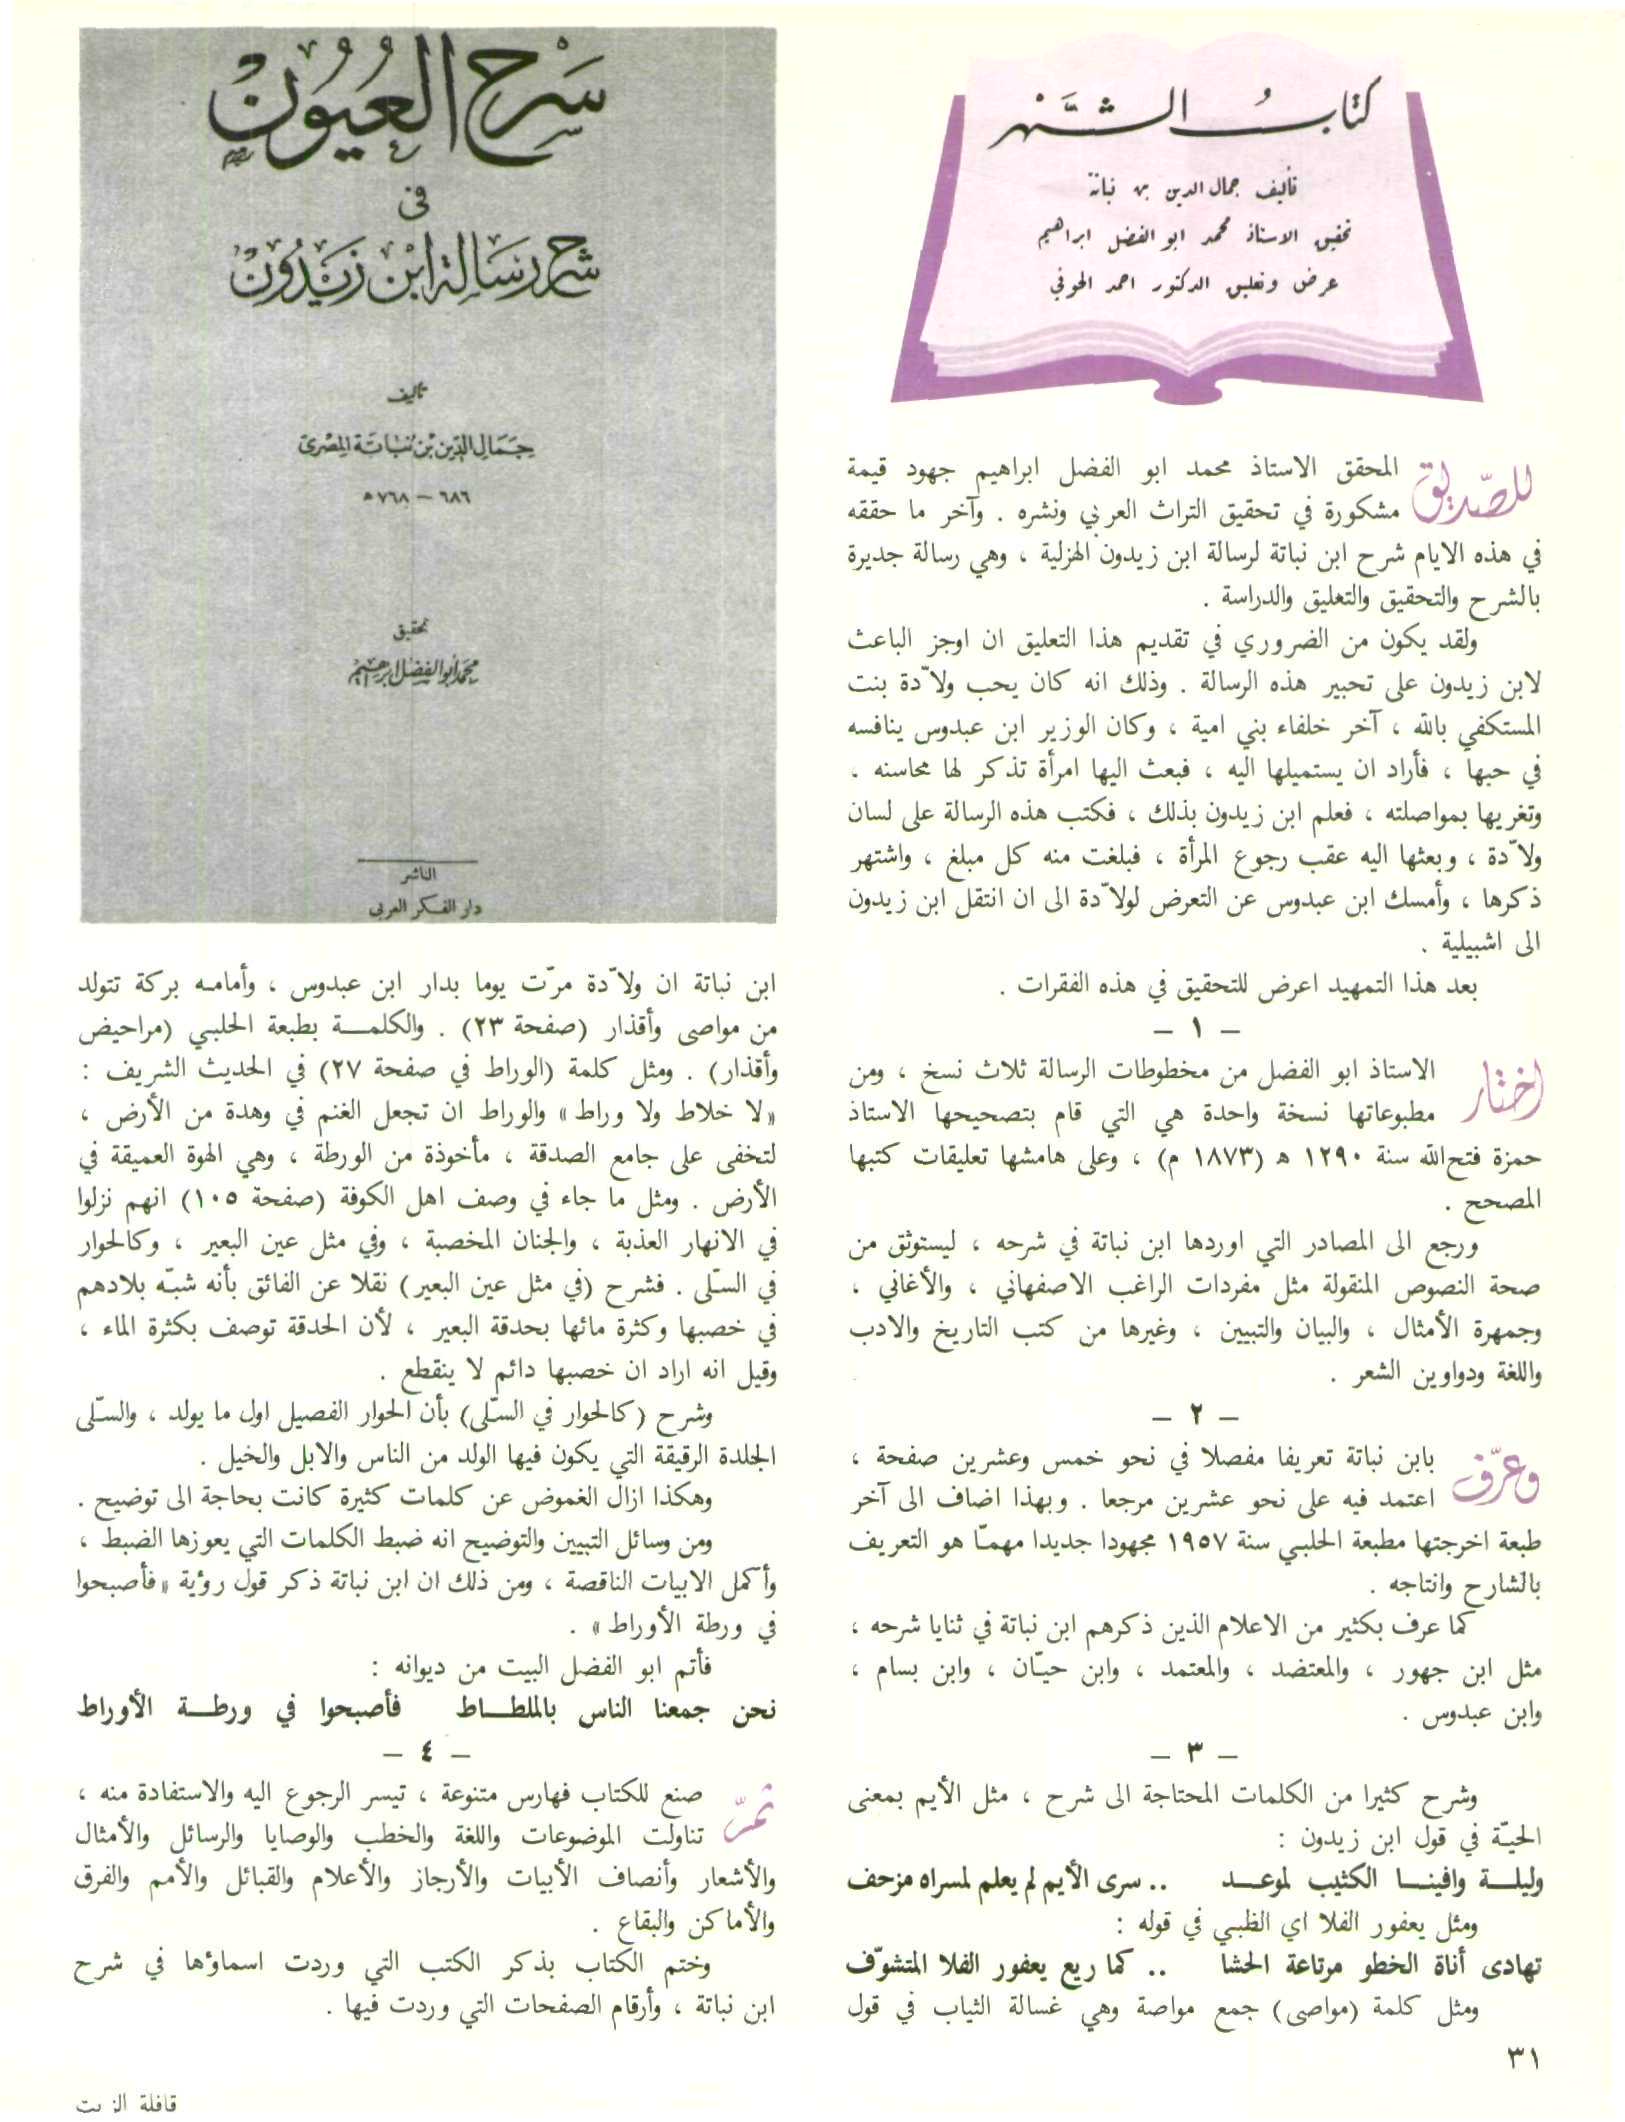 كتاب الشهر
تأليف جمال الدين بن نباتة
تحقيق الاستاذ محمد ابو الفضل ابراهيم
عرض وتعليق الدكتور احمد الحوفي
للصّديق المحقق الاستاذ محمد ابو الفضل ابراهيم جهود قيمة
مشكورة في تحقيق التراث العربي ونشره . وآخر ما حققه
في هذه الايام شرح ابن نباتة لرسالة ابن زيدون الهزلية ، وهي رسالة جديرة
بالشرح والتحقيق والتعليق والدراسة .
ولقد يكون من الضروري في تقديم هذا التعليق ان اوجز الباعث
لابن زيدون على تحبير هذه الرسالة . وذلك انه كان يحب ولاّدة بنت
المستكفي بالله ، آخر خلفاء بني امية ، وكان الوزير ابن عبدوس ينافسه
في حبها ، فأراد ان يستميلها اليه ، فبعث اليها امرأة تذكر لها محاسنه .
وتغريها بمواصلته ، فعلم ابن زيدون بذلك ، فكتب هذه الرسالة على لسان
ولاّدة ، وبعثها اليه عقب رجوع المرأة ، فبلغت منه كل مبلغ ، واشتهر
ذكرها ، وأمسك ابن عبدوس عن التعرض لولاّدة الى ان انتقل ابن زيدون
الى اشبيلية .
بعد هذا التمهيد اعرض للتحقيق في هذه الفقرات .
– ١ –
اختار الاستاذ ابو الفضل من مخطوطات الرسالة ثلاث نسخ ، ومن
مطبوعاتها نسخة واحدة هي التي قام بتصحيحها الاستاذ
حمزة فتح الله سنة ١٢٩٠ ه (١٨٧٣ م) ، وعلى هامشها تعليقات كتبها
المصحح .
ورجع الى المصادر التي اوردها ابن نباتة في شرحه ، ليستوثق من
صحة النصوص المنقولة مثل مفردات الراغب الاصفهاني ، والأغاني ،
وجمهرة الأمثال ، والبيان والتبيين ، وغيرها من كتب التاريخ والادب
واللغة ودواوين الشعر .
– ٢ –
وعرّف بابن نباتة تعريفا مفصلا في نحو خمس وعشرين صفحة ،
اعتمد فيه على نحو عشرين مرجعا . وبهذا اضاف الى آخر
طبعة اخرجتها مطبعة الحلبي سنة ١٩٥٧ مجهودا جديدا مهمّا هو التعريف
بالشارح وانتاجه .
كما عرف بكثير من الاعلام الذين ذكرهم ابن نباتة في ثنايا شرحه ،
مثل ابن جهور ، والمعتضد ، والمعتمد ، وابن حيّان ، وابن بسام ،
وابن عبدوس .
– ٣ –
وشرح كثيرا من الكلمات المحتاجة الى شرح ، مثل الأيم بمعنى
الحيّة في قول ابن زيدون :
وليلـــة وافينـــا الكثيب لموعـــد .. سرى الأيم لم يعلم لمسراه مزحف
ومثل يعفور الفلا اي الظبي في قوله :
تهادى أناة الخطو مرتاعة الحشا .. كما ريع يعفور الفلا المتشوّف
ومثل كلمة (مواصى) جمع مواصة وهي غسالة الثياب في قول
٣١
سرح العيون
في
شرح رسالة ابن زيدون
تأليف
جمال الدين بن نباتة المصرى
٦٨٦ – ٧٦٨ ه
تحقيق
محمد أبو الفضل إبراهيم
الناشر
دار الفكر العربي
ابن نباتة ان ولاّدة مرّت يوما بدار ابن عبدوس ، وأمامه بركة تتولد
من مواصى وأقذار (صفحة ٢٣) . والكلمـــة بطبعة الحلبي (مراحيض
وأقذار) . ومثل كلمة (الوراط في صفحة ٢٧) في الحديث الشريف :
«لا خلاط ولا وراط» والوراط ان تجعل الغنم في وهدة من الأرض ،
لتخفى على جامع الصدقة ، مأخوذة من الورطة ، وهي الهوة العميقة في
الأرض . ومثل ما جاء في وصف اهل الكوفة (صفحة ١٠٥) انهم نزلوا
في الانهار العذبة ، والجنان المخصبة ، وفي مثل عين البعير ، وكالحوار
في السّلى . فشرح (في مثل عين البعير) نقلا عن الفائق بأنه شبّه بلادهم
في خصبها وكثرة مائها بحدقة البعير ، لأن الحدقة توصف بكثرة الماء ،
وقيل انه اراد ان خصبها دائم لا ينقطع .
وشرح (كالحوار في السّلى) بأن الحوار الفصيل اول ما يولد ، والسّلى
الجلدة الرقيقة التي يكون فيها الولد من الناس والابل والخيل .
وهكذا ازال الغموض عن كلمات كثيرة كانت بحاجة الى توضيح .
ومن وسائل التبيين والتوضيح انه ضبط الكلمات التي يعوزها الضبط ،
وأكمل الابيات الناقصة ، ومن ذلك ان ابن نباتة ذكر قول رؤية «فأصبحوا
في ورطة الأوراط» .
فأتم ابو الفضل البيت من ديوانه :
نحن جمعنا الناس بالملطـــاط فأصبحوا في ورطـــة الأوراط
– ٤ –
ثمّ صنع للكتاب فهارس متنوعة ، تيسر الرجوع اليه والاستفادة منه ،
تناولت الموضوعات واللغة والخطب والوصايا والرسائل والأمثال
والأشعار وأنصاف الأبيات والأرجاز والأعلام والقبائل والأمم والفرق
والأماكن والبقاع .
وختم الكتاب بذكر الكتب التي وردت اسماؤها في شرح
ابن نباتة ، وأرقام الصفحات التي وردت فيها .
قافلة الزيت